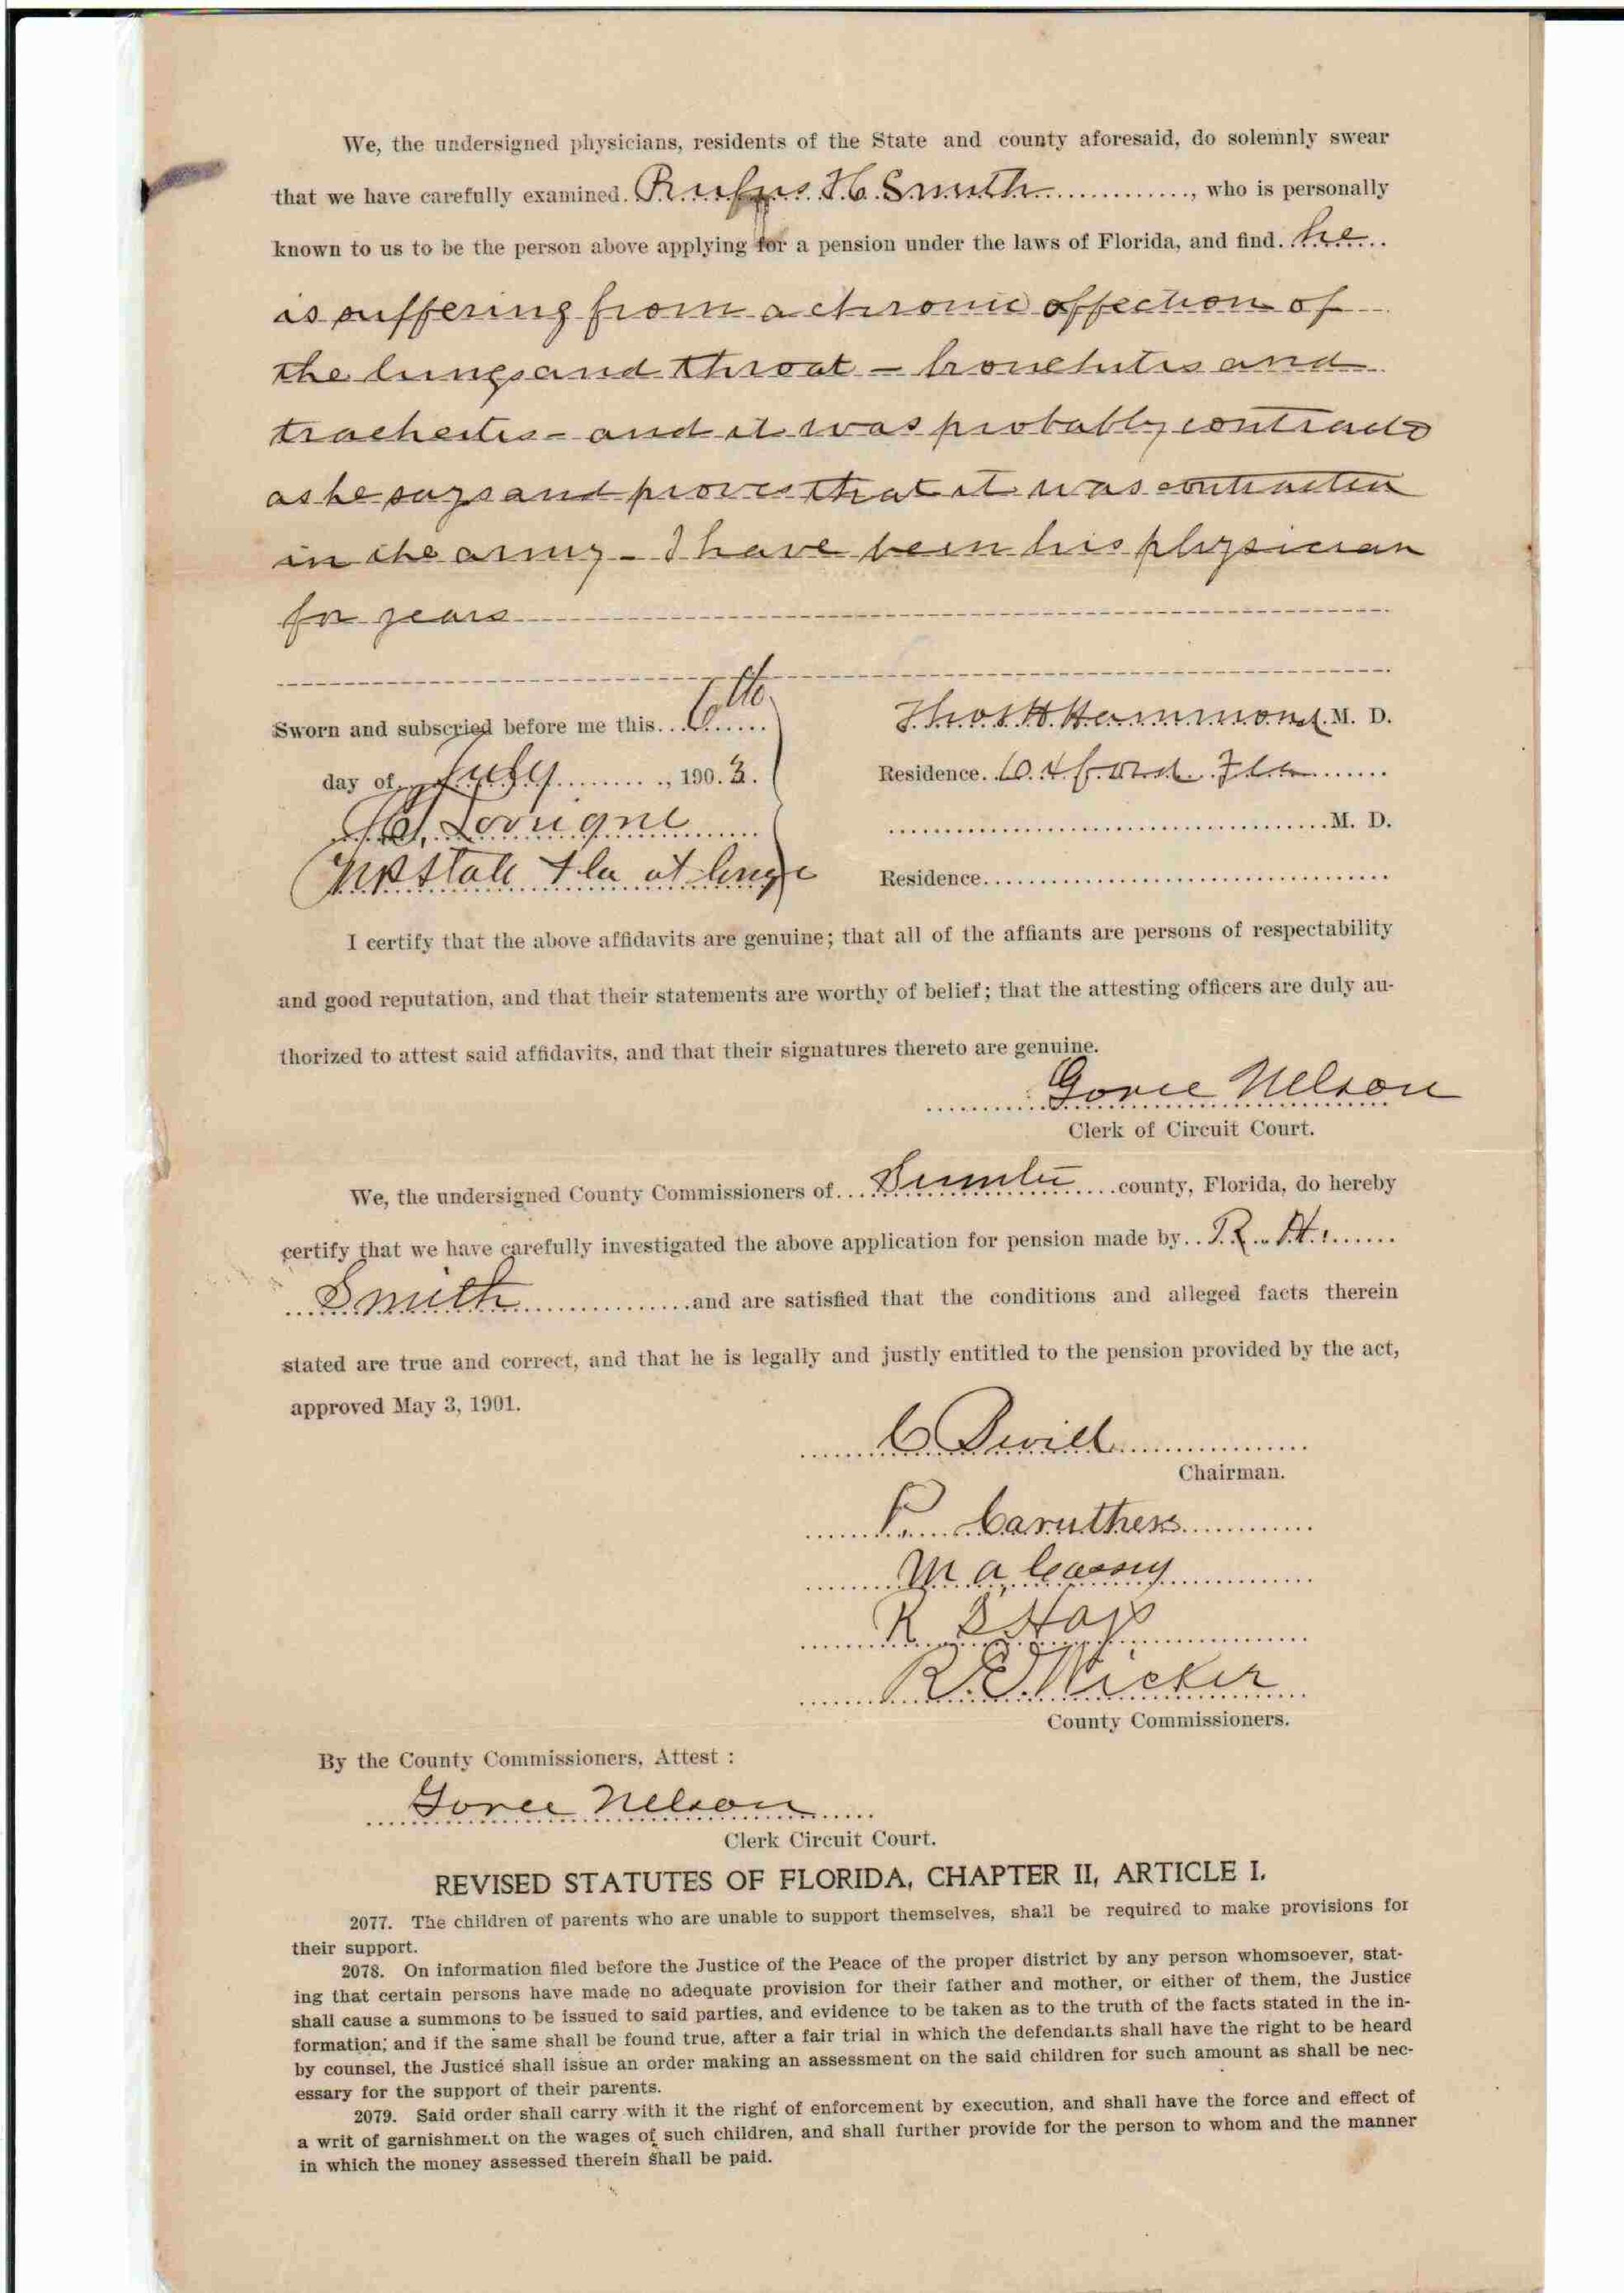 We, the undersigned physicians, residents of the State and county aforesaid, do solemnly swear
that we have carefully examined. Rufus H Smith , who is personally
known to us to be the person above applying for a pension under the laws of Florida, and find. he
is suffering from a chronic affection of
the lungs and throat – bronchitis and
and it was probably
as he says and proves that it was contracted
in the army – I have been his physician
for years
Sworn and subscried before me this. 6th
day of July , 190.3.
State Fla at large
Thos H Hammond M. D.
Residence. Oxford Fla
M. D.
Residence
I certify that the above affidavits are genuine; that all of the affiants are persons of respectability
and good reputation, and that their statements are worthy of belief; that the attesting officers are duly au-
thorized to attest said affidavits, and that their signatures thereto are genuine.
Nelson
Clerk of Circuit Court.
We, the undersigned County Commissioners of Sumter county, Florida, do hereby
certify that we have carefully investigated the above application for pension made by R. H.
Smith and are satisfied that the conditions and alleged facts therein
stated are true and correct, and that he is legally and justly entitled to the pension provided by the act,
approved May 3, 1901.
C
Chairman.
P. Caruthers
M A
R S Hays
R. E. Wicker
County Commissioners.
By the County Commissioners, Attest :
Nelson
Clerk Circuit Court.
REVISED STATUTES OF FLORIDA, CHAPTER II, ARTICLE I.
2077. The children of parents who are unable to support themselves, shall be required to make provisions for
their support.
2078. On information filed before the Justice of the Peace of the proper district by any person whomsoever, stat-
ing that certain persons have made no adequate provision for their father and mother, or either of them, the Justice
shall cause a summons to be issued to said parties, and evidence to be taken as to the truth of the facts stated in the in-
formation; and if the same shall be found true, after a fair trial in which the defendants shall have the right to be heard
by counsel, the Justice shall issue an order making an assessment on the said children for such amount as shall be nec-
essary for the support of their parents.
2079. Said order shall carry with it the right of enforcement by execution, and shall have the force and effect of
a writ of garnishment on the wages of such children, and shall further provide for the person to whom and the manner
in which the money assessed therein shall be paid.